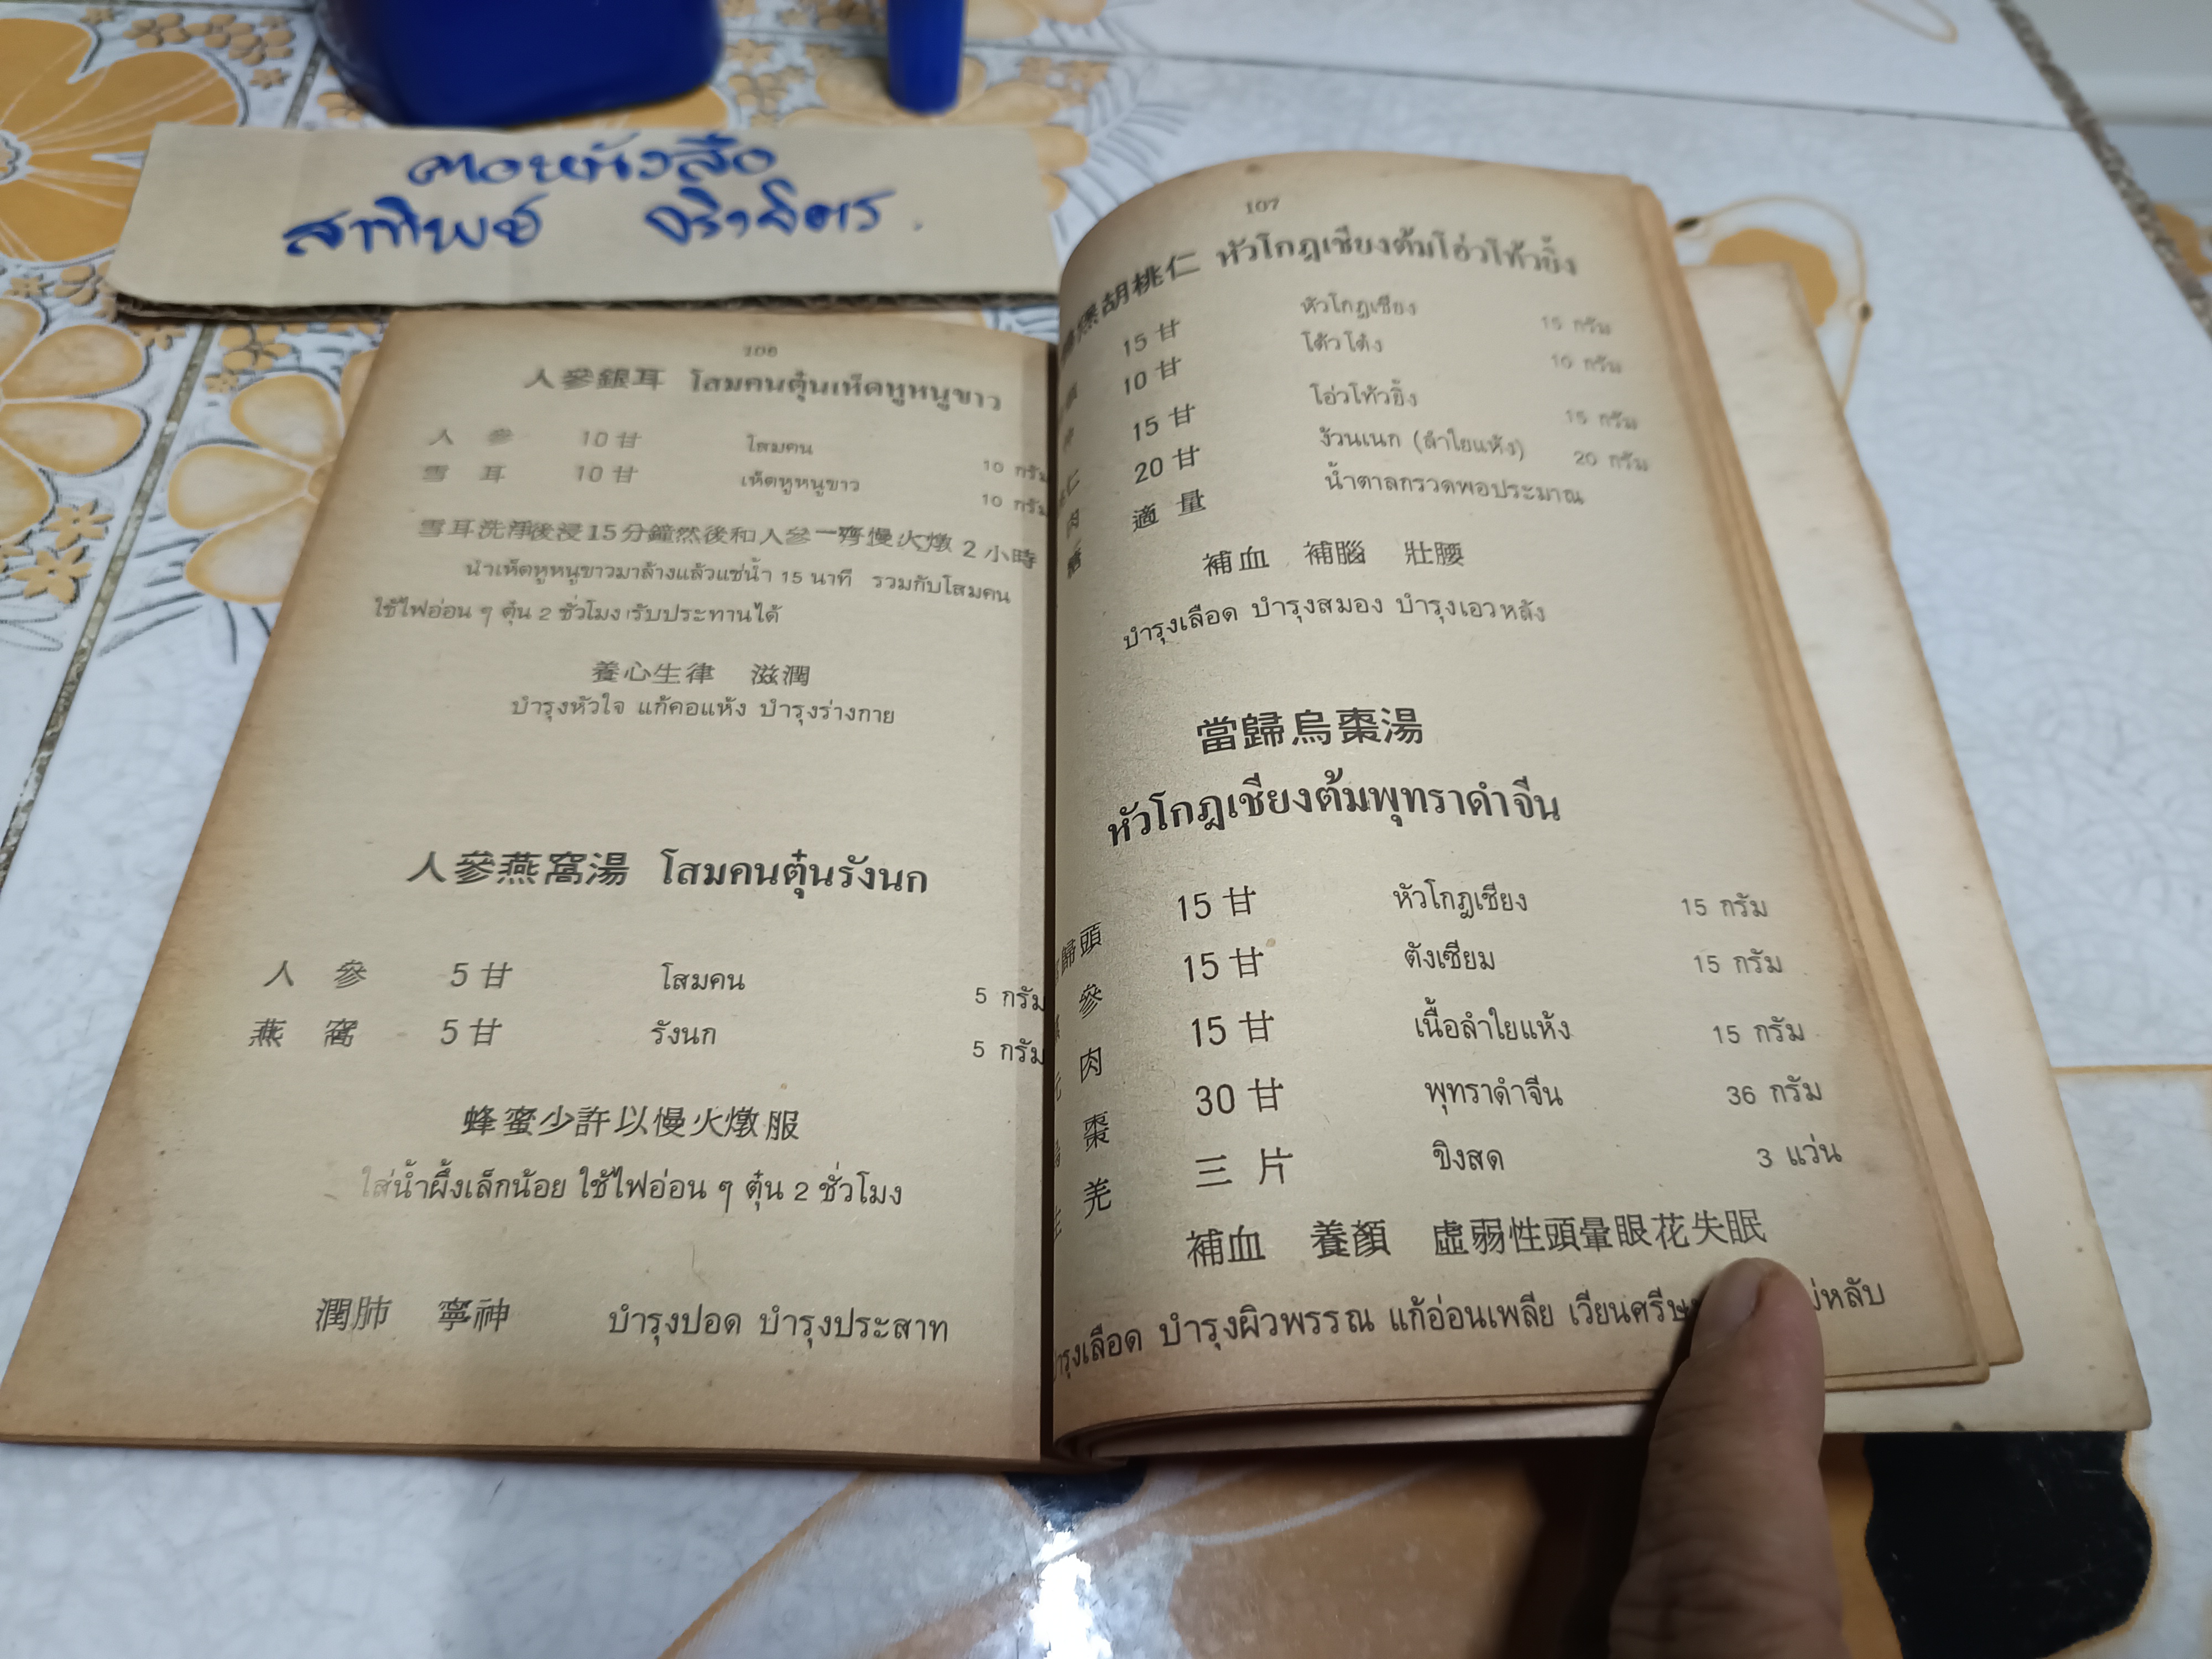 สาทิพย์
106
人參銀耳 โสมคนตุ๋นเห็ดหูหนูขาว
人 參 10 甘 โสมคน 10 กรัม
雪 耳 10 甘 เห็ดหูหนูขาว 10 กรัม
雪耳洗淨後浸15分鐘然後和人參一齊慢火燉 2 小時
นำเห็ดหูหนูขาวมาล้างแล้วแช่น้ำ 15 นาที รวมกับโสมคน
ใช้ไฟอ่อน ๆ ตุ๋น 2 ชั่วโมง รับประทานได้
養心生律 滋潤
บำรุงหัวใจ แก้คอแห้ง บำรุงร่างกาย
人參燕窩湯 โสมคนตุ๋นรังนก
人 參 5 甘 โสมคน 5 กรัม
燕 窩 5 甘 รังนก 5 กรัม
蜂蜜少許以慢火燉服
ใส่น้ำผึ้งเล็กน้อย ใช้ไฟอ่อน ๆ ตุ๋น 2 ชั่วโมง
潤肺 寧神 บำรุงปอด บำรุงประสาท
107
胡桃仁 หัวโกฎเชียงต้มโอ่วโท้วยิ้ง
15 甘 หัวโกฎเชียง 15 กรัม
10 甘 โต้วโต๋ง 10 กรัม
仁 15 甘 โอ่วโท้วยิ้ง 15 กรัม
肉 20 甘 ง้วนเนก (ลำใยแห้ง) 20 กรัม
糖 適 量 น้ำตาลกรวดพอประมาณ
補血 補腦 壯腰
บำรุงเลือด บำรุงสมอง บำรุงเอวหลัง
當歸烏棗湯
หัวโกฎเชียงต้มพุทราดำจีน
歸頭 15 甘 หัวโกฎเชียง 15 กรัม
參 15 甘 ตังเซียม 15 กรัม
肉 15 甘 เนื้อลำใยแห้ง 15 กรัม
棗 30 甘 พุทราดำจีน 36 กรัม
羌 三 片 ขิงสด 3 แว่น
補血 養顏 虛弱性頭暈眼花失眠
บำรุงเลือด บำรุงผิวพรรณ แก้อ่อนเพลีย เวียนศรีษ